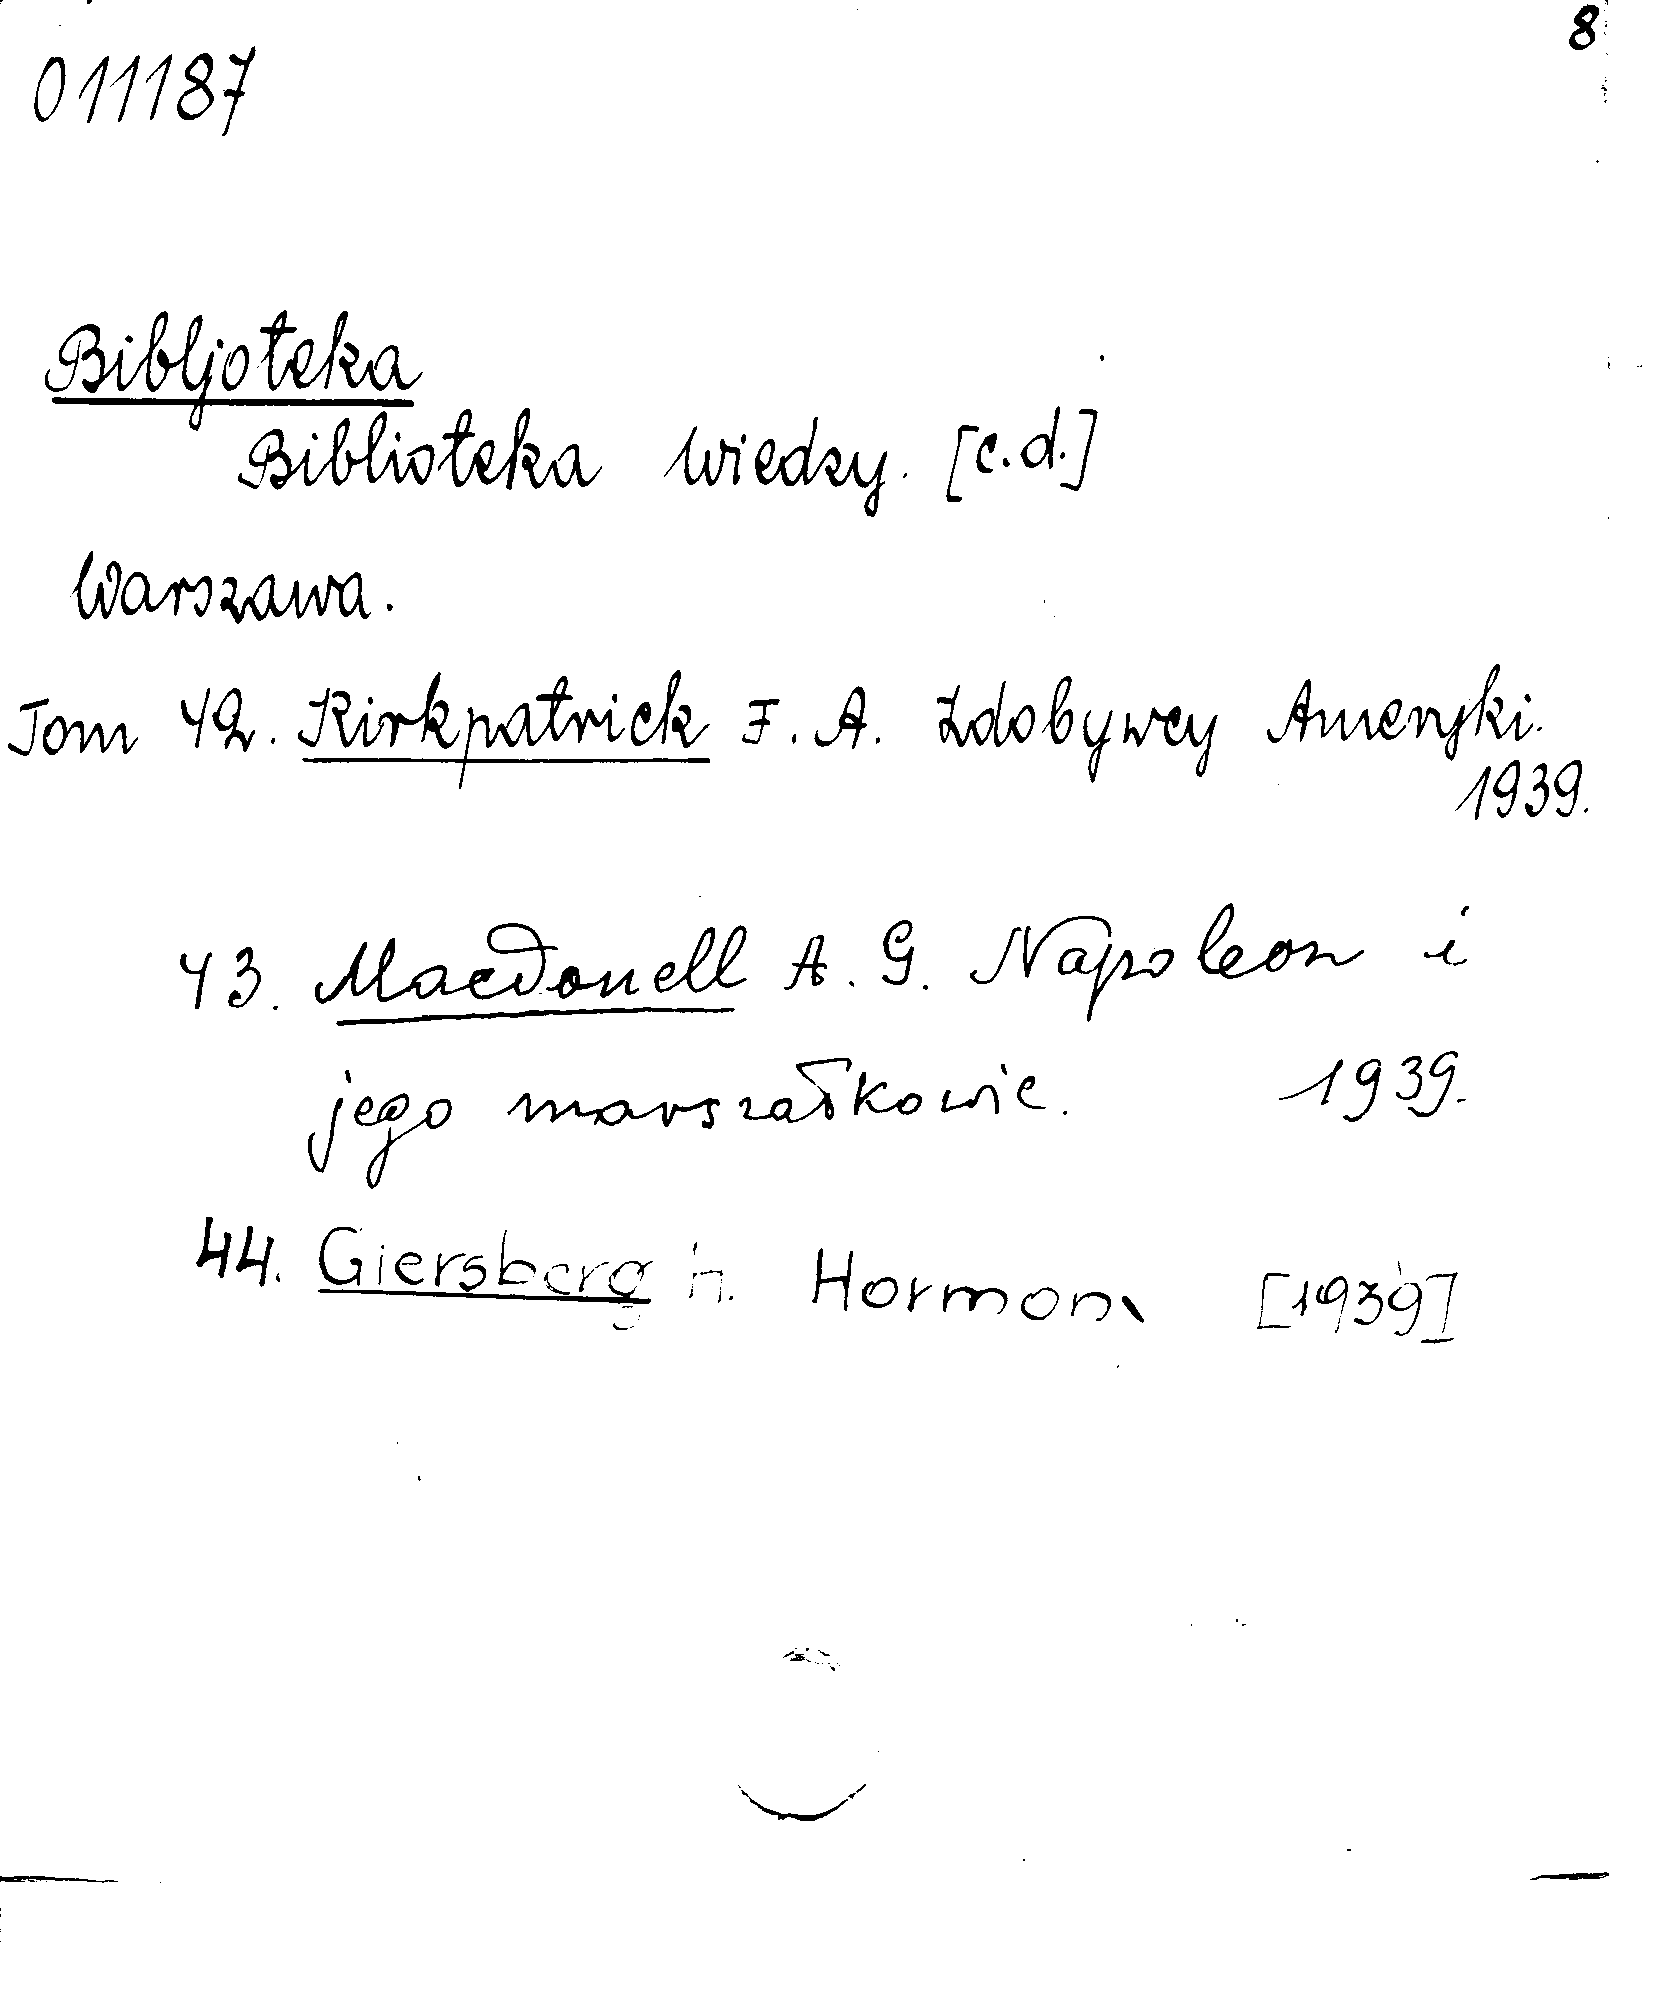 8
011187
Bibljoteka
Biblioteka wiedzy. [c.d.]
Warszawa.
Tom 42. Kirkpatrick F. A. Zdobywcy Ameryki.
1939.
43. Macdonell A. G. Napoleon i
jego marszałkowie. 1939.
44. Giersberg H. Hormony [1939]